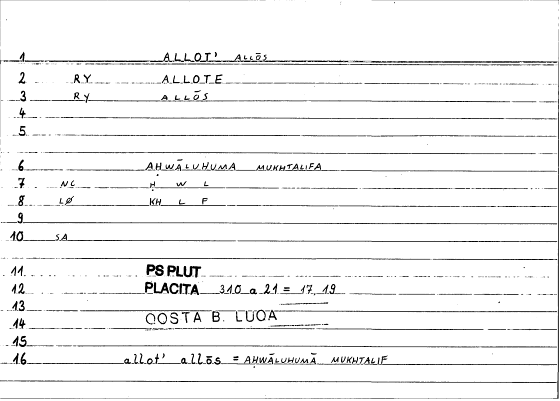 1 ALLOT' ALLŌS
2 RY ALLOTE
3 RY ALLŌS
4
5
6 AHWĀLUHUMA MUKHTALIFA
7 NC Ḣ W L
8 LØ KH L F
9
10 SA
11 PS PLUT
12 PLACITA 310 a 21 = 17,19
13
14 QOSTA B. LUQA
15
16 allot' allōs = AHWĀLUHUMĀ MUKHTALIF